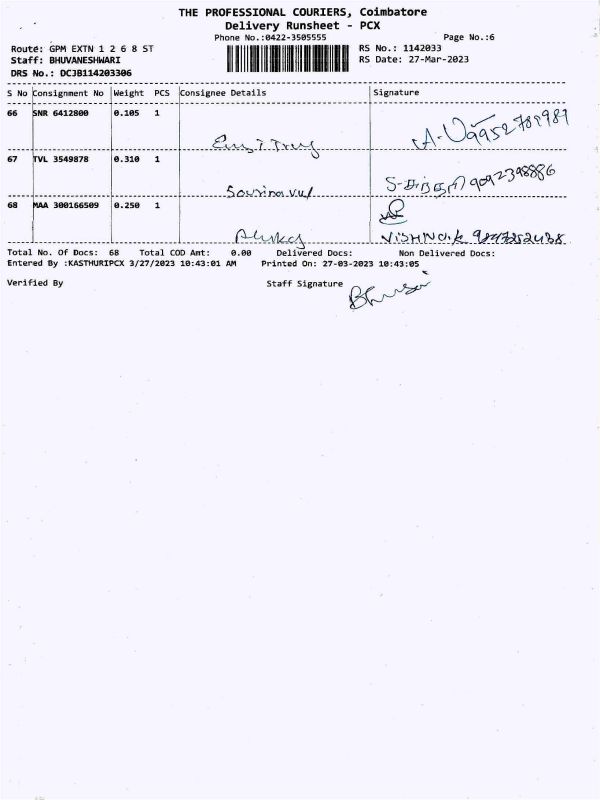 THE PROFESSIONAL COURIERS, Coimbatore
Delivery Runsheet - PCX
Phone No.:0422-3505555 Page No.:6
Route: GPM EXTN 1 2 6 8 ST RS No.: 1142033
Staff: BHUVANESHWARI RS Date: 27-Mar-2023
DRS No.: DCJB114203306
S No Consignment No Weight PCS Consignee Details Signature
66 SNR 6412800 0.105 1
67 TVL 3549878 0.310 1
9092398886
68 MAA 300166509 0.250 1
Total No. Of Docs: 68 Total COD Amt: 0.00 Delivered Docs: Non Delivered Docs:
Entered By :KASTHURIPCX 3/27/2023 10:43:01 AM Printed On: 27-03-2023 10:43:05
Verified By Staff Signature